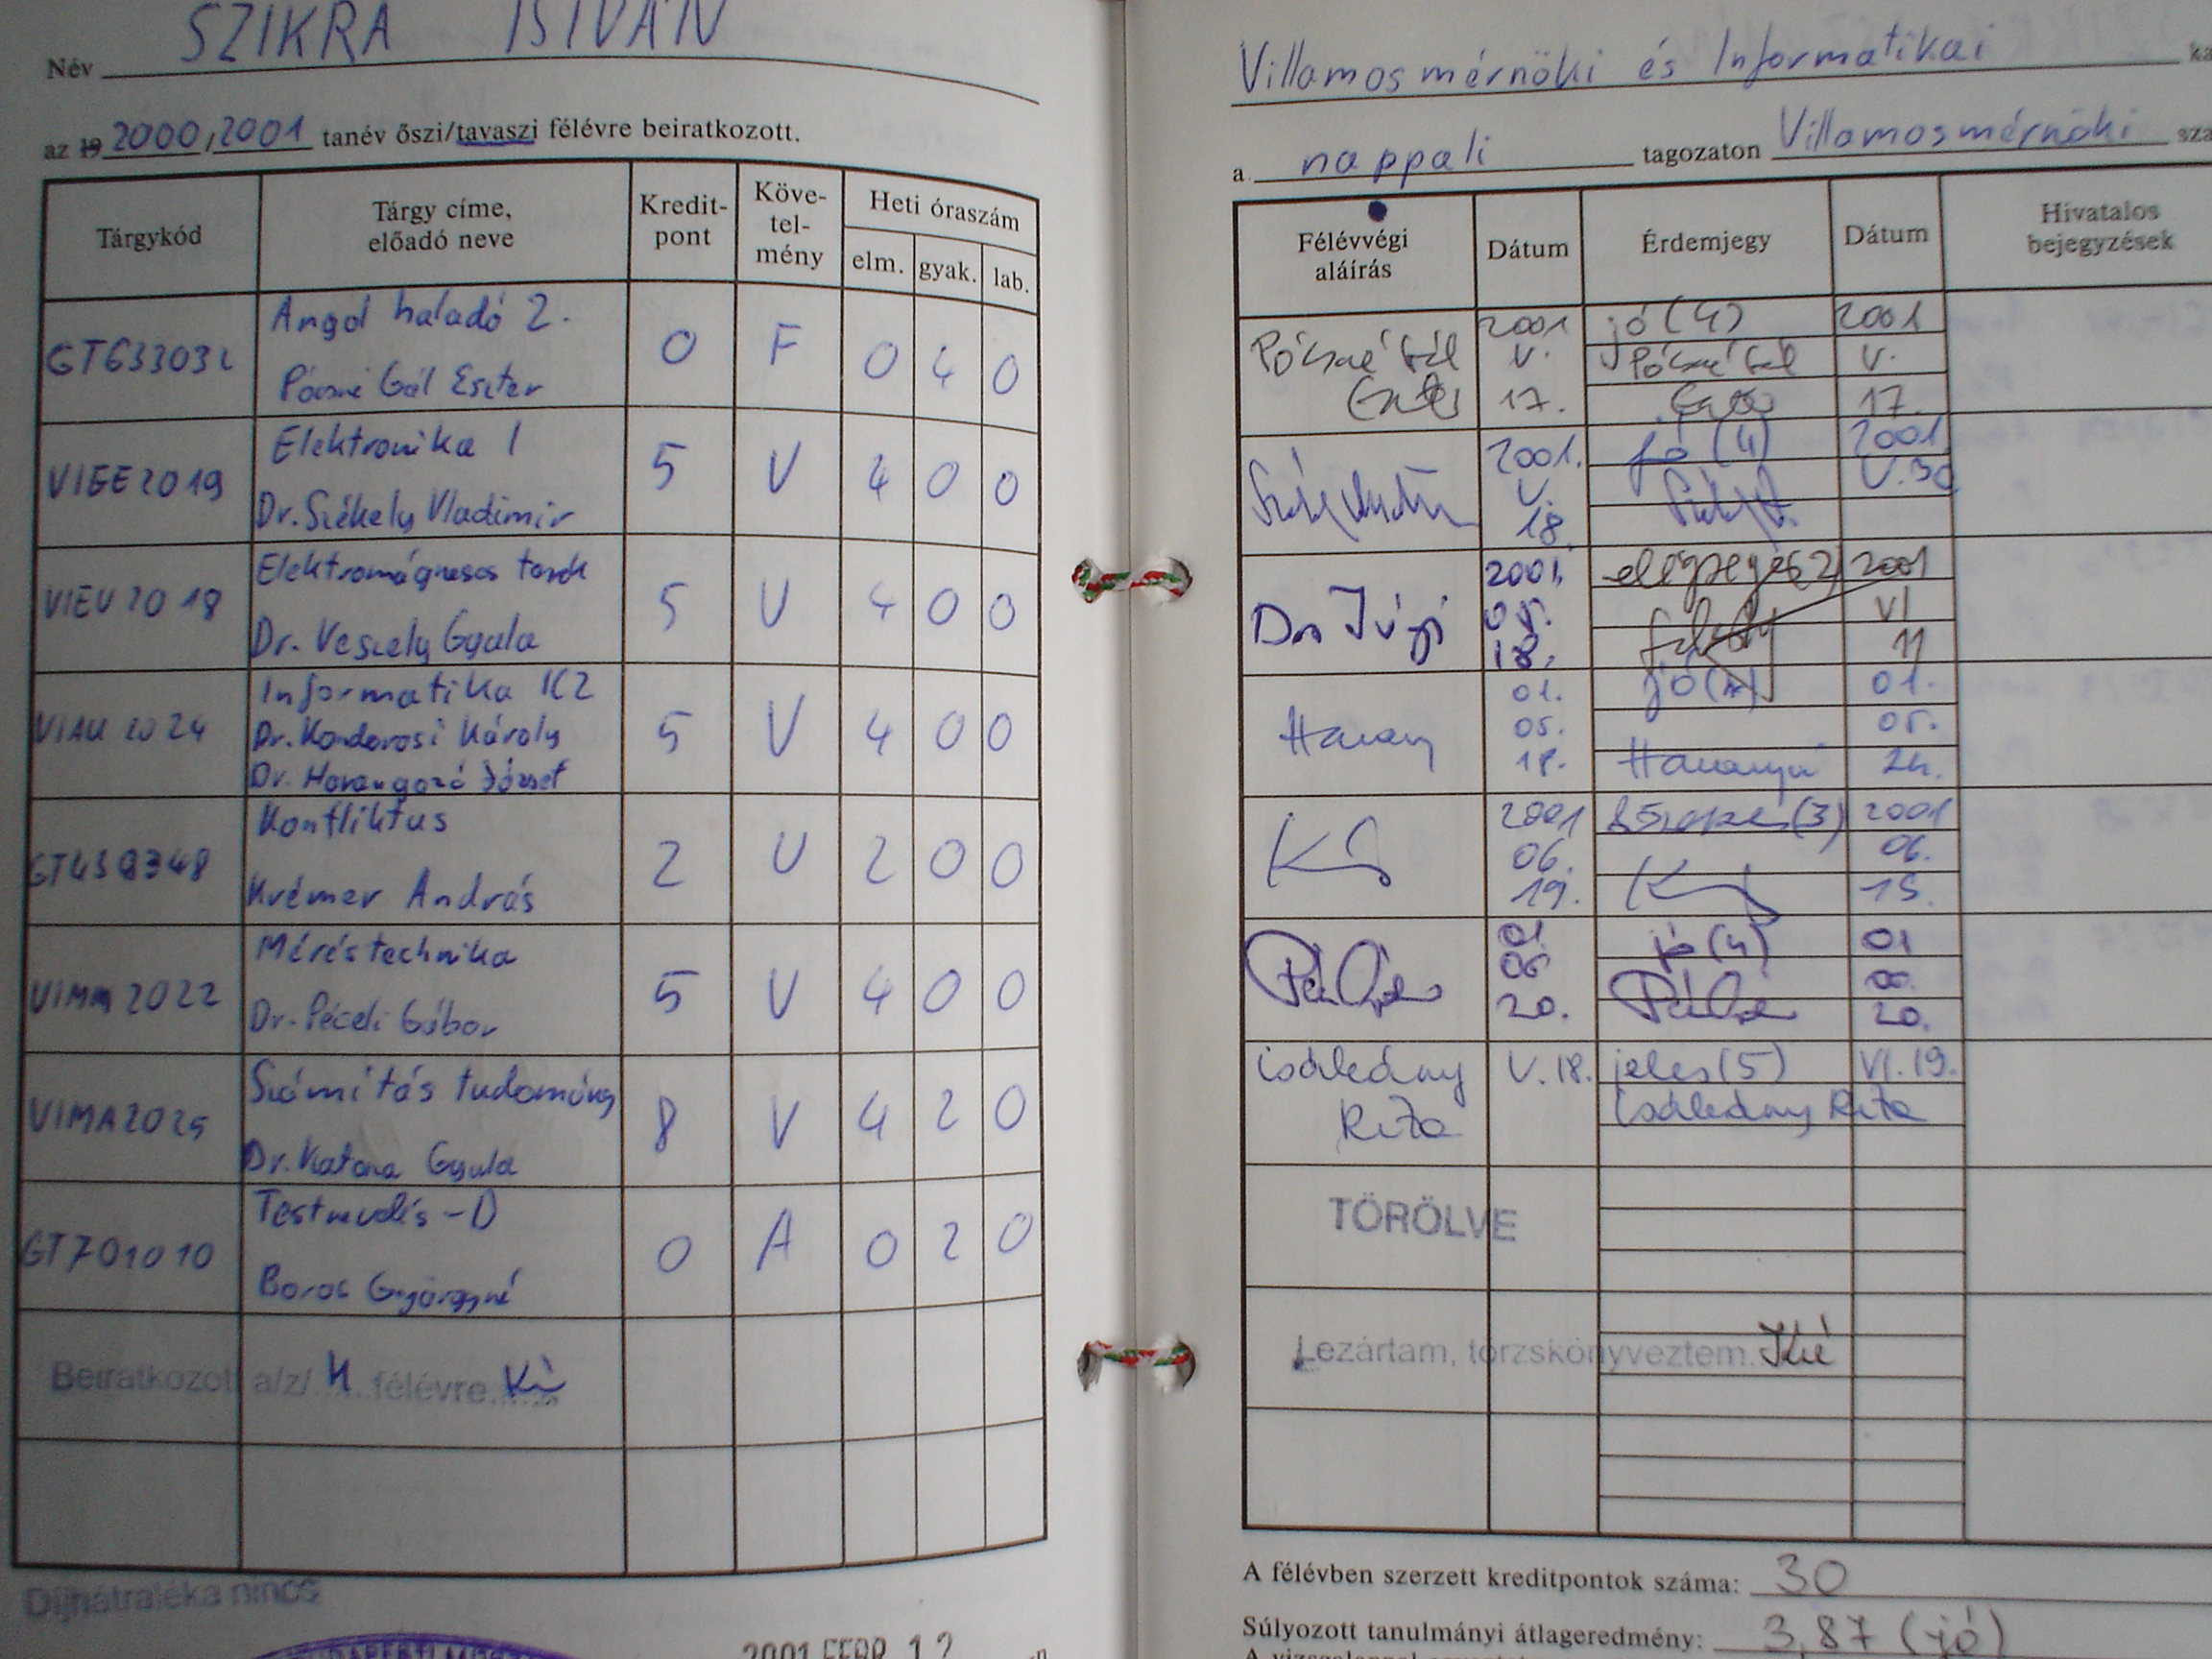 Név SZIKRA ISTVÁN
az 19 2000/2001 tanév őszi/tavaszi félévre beiratkozott.
Tárgykód
Tárgy címe, előadó neve
Kredit-pont
Köve-tel-mény
Heti óraszám
elm. gyak. lab.
Angol haladó 2.
GT63303 0 F 0 4 0
Pócsné Gál Eszter
Elektronika I
VIEE2019 5 V 4 0 0
Dr. Székely Vladimir
Elektromágneses terek
VIEV2018 5 V 4 0 0
Dr. Veszely Gyula
Informatika
VIAU2024 5 V 4 0 0
Dr. Kondorosi Károly
Dr. Harangozó József
Konfliktus
2 V 2 0 0
Krémer András
Méréstechnika
VIMM2022 5 V 4 0 0
Dr. Péceli Gábor
Számítás tudomány
VIMA2025 8 V 4 2 0
Dr. Katona Gyula
Testnevelés-D
GT701010 0 A 0 2 0
Boros Györgyné
Beiratkozott a/z/ 4 félévre
Díjhátraléka nincs
2001 FEBR. 12
Villamosmérnöki és Informatikai ka
a nappali tagozaton Villamosmérnöki sza
Félévvégi aláírás
Dátum
Érdemjegy
Dátum
Hivatalos bejegyzések
Pócsné Gál Eszter 2001 V. 17. jó (4) Pócsné Gál 2001 V. 17.
2001. V. 18. jó (4) 2001 V. 30
2001. 05. 18. elégséges 2) 2001 VI 11
01. 05. 18. jó (4) 01. 05. 24.
2001 06. 19. közepes (3) 2001 06. 19.
01 06 20. jó (4) 01 06 20.
Csákány Rita V. 18. jeles (5) Csákány Rita VI. 19.
TÖRÖLVE
Lezártam, törzskönyveztem.
A félévben szerzett kreditpontok száma: 30
Súlyozott tanulmányi átlageredmény: 3,87 (jó)